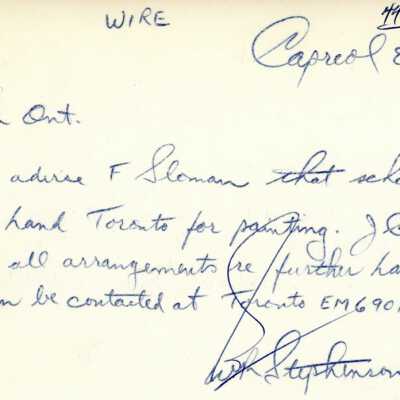 WIRE
44
Capreol
Ont.
advise F Sloman that
hand Toronto for painting. J
all arrangements re further
be contacted at Toronto EM690
Stephenson